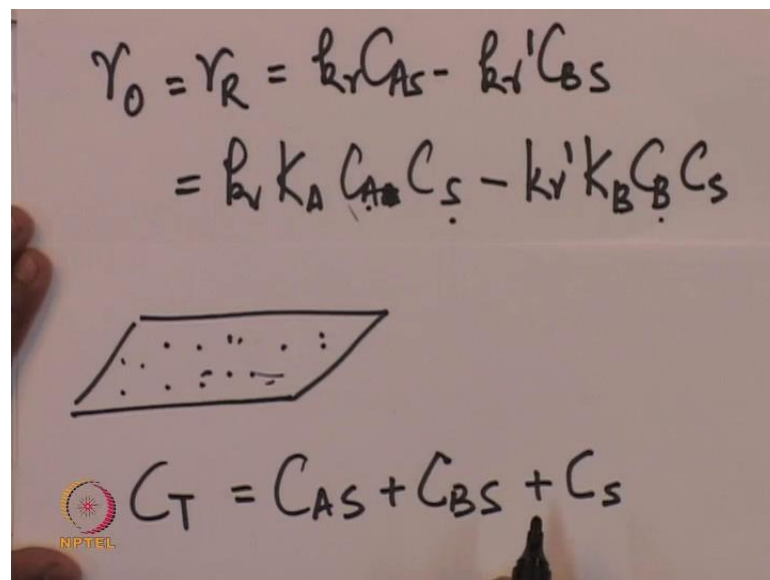 r₀ = r_R = k_r C_AS - k_r' C_BS
= k_r K_A C_A C_S - k_r' K_B C_B C_S
C_T = C_AS + C_BS + C_S
NPTEL